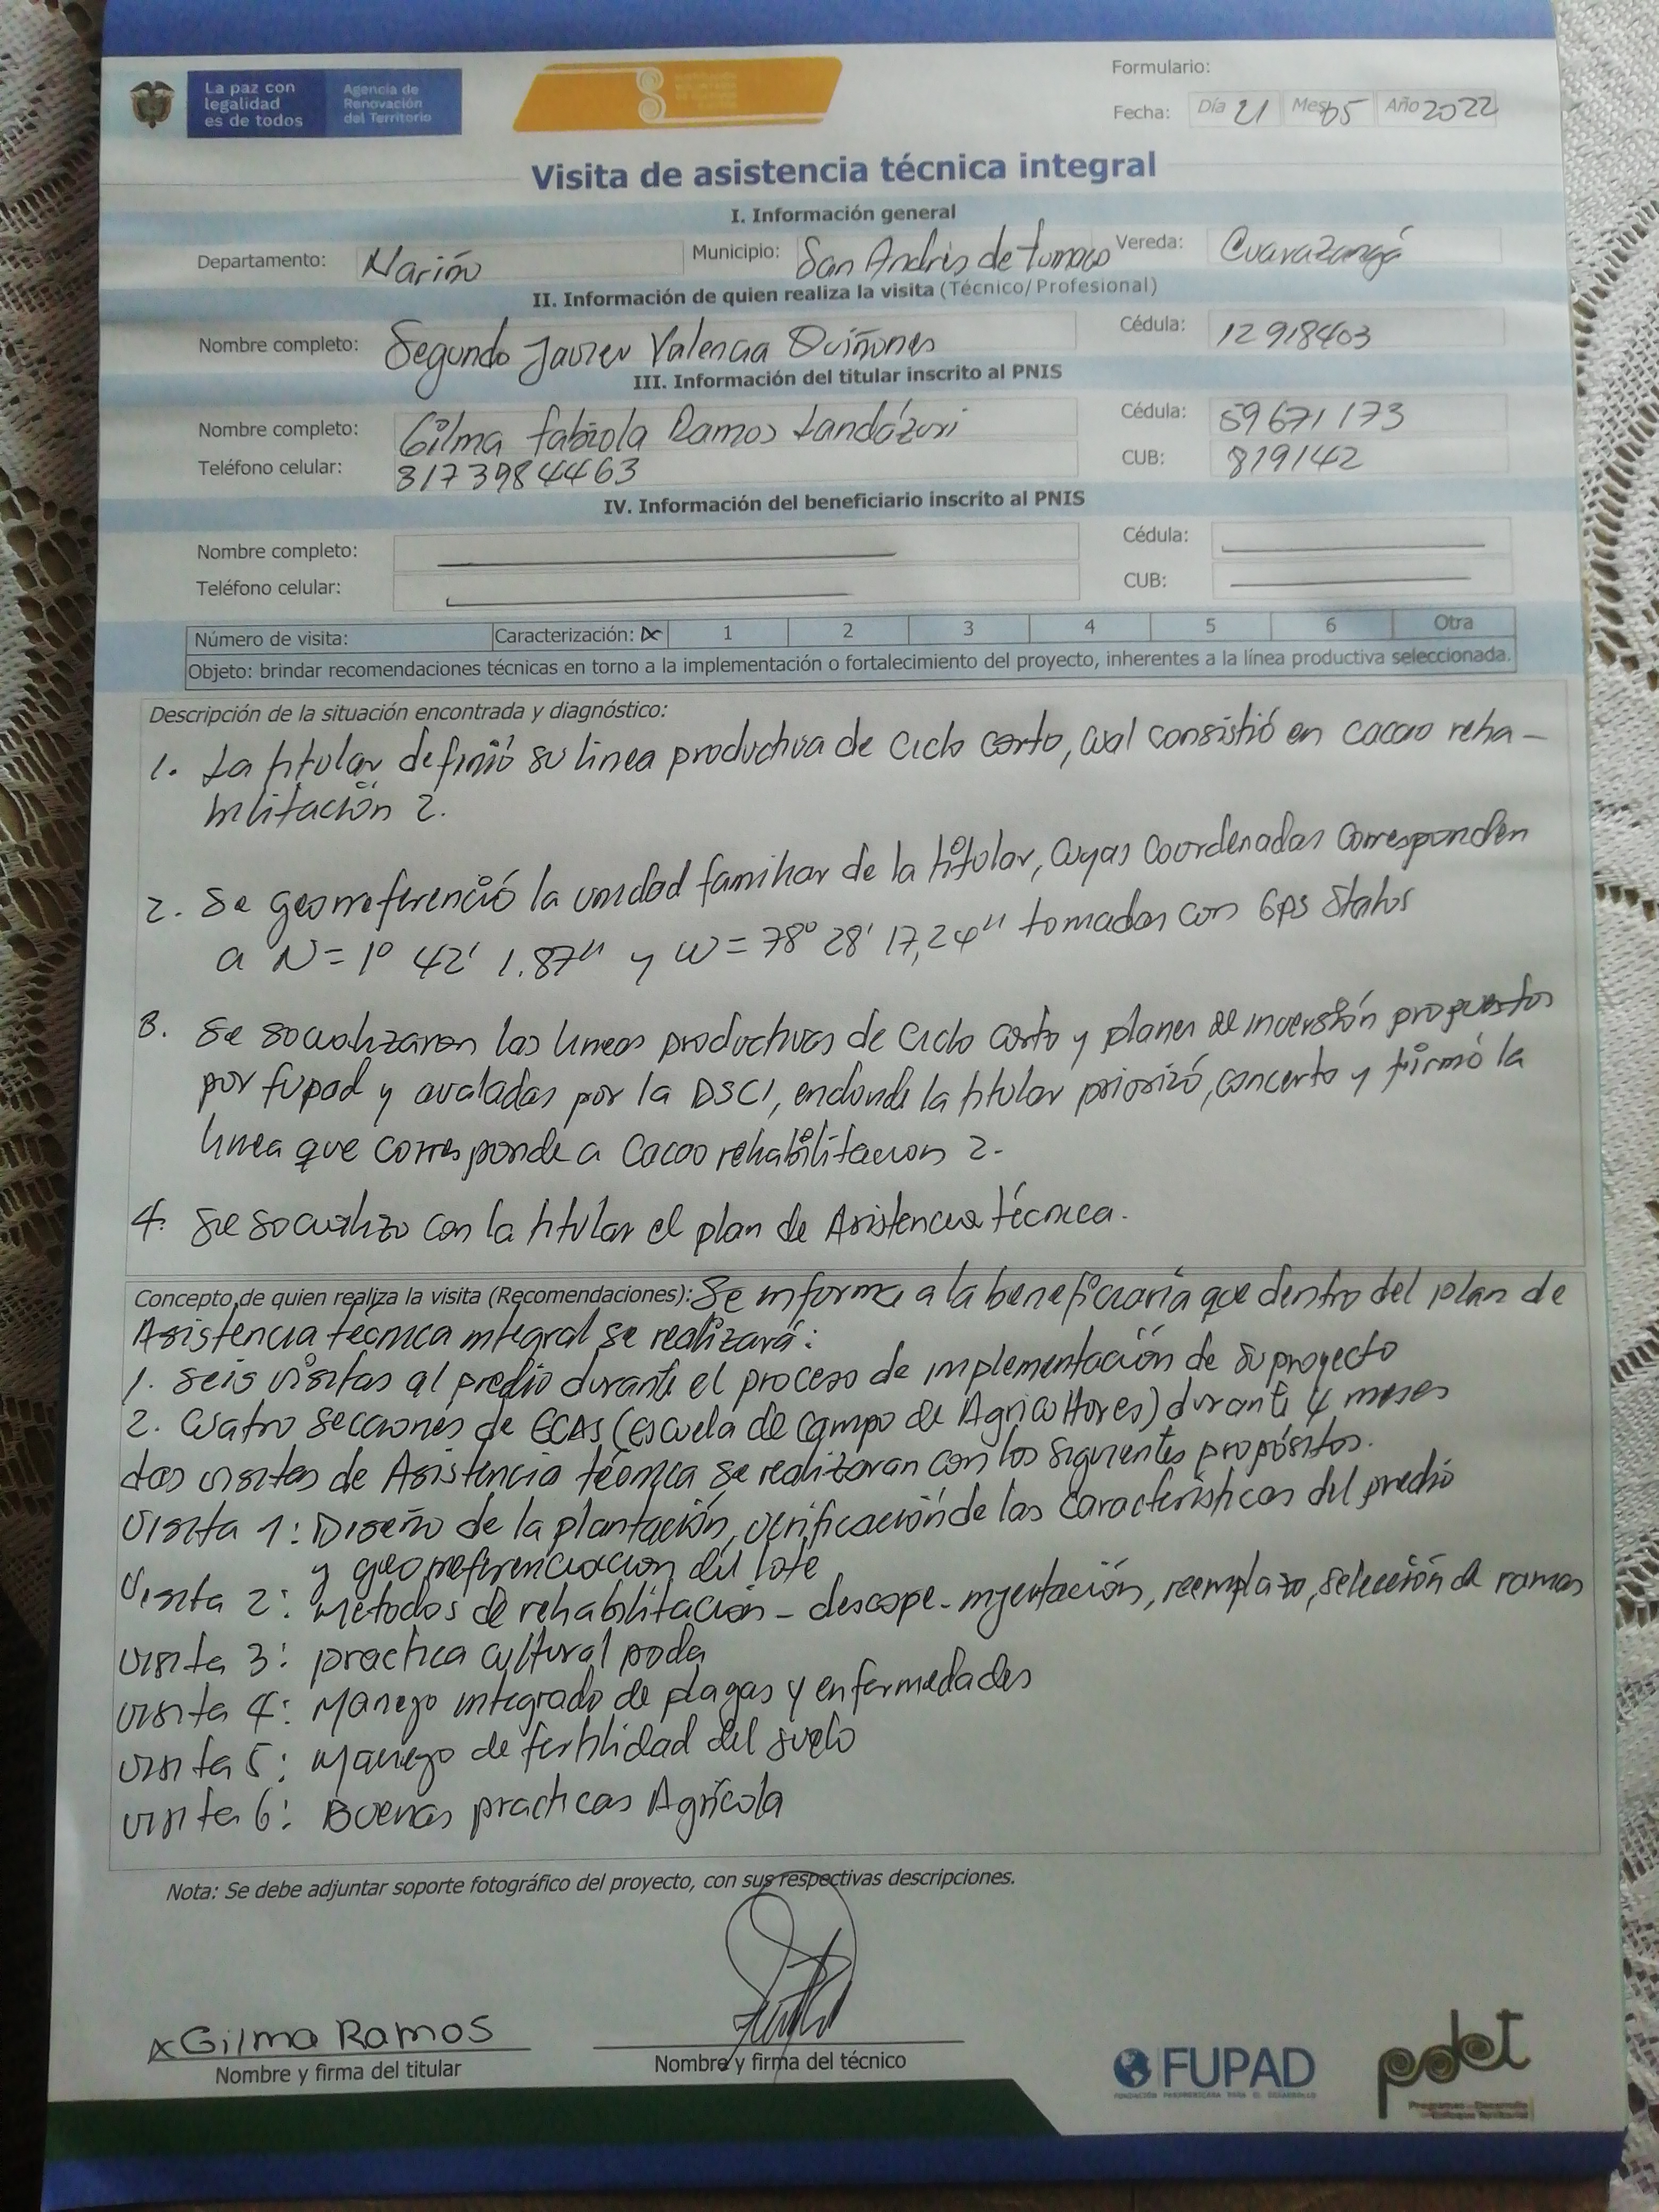 La paz con
legalidad
es de todos
Agencia de
Renovación
del Territorio
Formulario:
Fecha: Día 21 Mes 05 Año 2022
Visita de asistencia técnica integral
I. Información general
Departamento: Nariño Municipio: San Andrés de Tumaco Vereda:
II. Información de quien realiza la visita (Técnico/Profesional)
Nombre completo: Segundo Javier Valencia Quiñones Cédula: 12918403
III. Información del titular inscrito al PNIS
Nombre completo: Gilma Fabiola Ramos Landázuri Cédula: 59671173
Teléfono celular: 3173984463 CUB: 819142
IV. Información del beneficiario inscrito al PNIS
Nombre completo: Cédula:
Teléfono celular: CUB:
Número de visita: Caracterización: X 1 2 3 4 5 6 Otra
Objeto: brindar recomendaciones técnicas en torno a la implementación o fortalecimiento del proyecto, inherentes a la línea productiva seleccionada.
Descripción de la situación encontrada y diagnóstico:
1. La titular definió su linea productiva de ciclo corto, cual consistió en cacao reha-
bilitación 2.
2. Se georreferenció la unidad familiar de la titular, cuyas coordenadas corresponden
a N=1° 42' 1.87" y W=78° 28' 17,24" tomadas con GPS Status
3. Se socializaron las lineas productivas de ciclo corto y planes de inversión propuestos
por fupad y avaladas por la DSCI, endonde la titular priorizó, concerto y firmó la
linea que corresponde a Cacao rehabilitacion 2.
4. Se socializo con la titular el plan de Asistencia técnica.
Concepto de quien realiza la visita (Recomendaciones): Se informa a la beneficiaria que dentro del plan de
Asistencia técnica integral se realizará:
1. Seis visitas al predio durante el proceso de implementación de su proyecto
2. Cuatro secciones de ECAS (escuela de campo de Agricultores) durante 4 meses
Las visitas de Asistencia técnica se realizaran con los siguientes propósitos.
Visita 1: Diseño de la plantación, verificación de las características del predio
y georreferenciacion del lote
Visita 2: Métodos de rehabilitación - descope - injertación, reemplazo, selección de ramas
visita 3: practica cultural poda
visita 4: Manejo integrado de plagas y enfermedades
visita 5: Manejo de fertilidad del suelo
visita 6: Buenas practicas Agrícola
Nota: Se debe adjuntar soporte fotográfico del proyecto, con sus respectivas descripciones.
x Gilma Ramos
Nombre y firma del titular
Nombre y firma del técnico
FUPAD
pdet